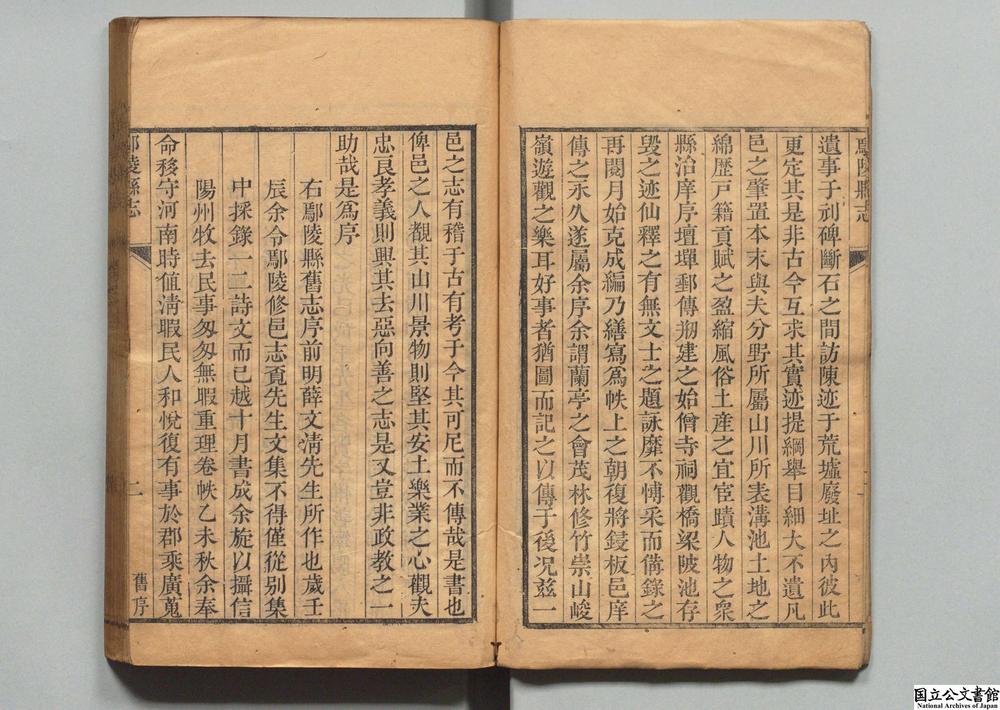 鄢陵縣志
遺事于刹碑斷石之間訪陳迹于荒墟廢址之內彼此
更定其是非古今互求其實迹提綱舉目細大不遺凡
邑之肇置本末與夫分野所屬山川所表溝池土地之
綿歷戸籍貢賦之盈縮風俗土産之宜宦蹟人物之衆
縣治庠序壇墠郵傳剏建之始僧寺祠觀橋梁陂池存
毀之迹仙釋之有無文士之題詠靡不愽采而偹錄之
再閱月始克成編乃繕寫爲帙上之朝復將鋟板邑庠
傳之永久遂屬余序余謂蘭亭之會茂林修竹崇山峻
嶺遊觀之樂耳好事者猶圖而記之以傳于後况玆一
邑之志有稽于古有考于今其可尼而不傳哉是書也
俾邑之人覩其山川景物則堅其安土樂業之心觀夫
忠良孝義則興其去惡向善之志是又豈非政教之一
助哉是爲序
右鄢陵縣舊志序前明薛文淸先生所作也歲壬
辰余令鄢陵修邑志覔先生文集不得僅從别集
中採錄一二詩文而已越十月書成余旋以攝信
陽州牧去民事匆匆無暇重理卷帙乙未秋余奉
命移守河南時值淸暇民人和悅復有事於郡乘廣蒐
鄢陵縣志
二
舊序
国立公文書館
National Archives of Japan